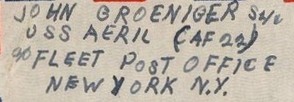 JOHN GROENIGER S2/c
USS AERIL (AF22)
c/o FLEET POST OFFICE
NEW YORK N.Y.